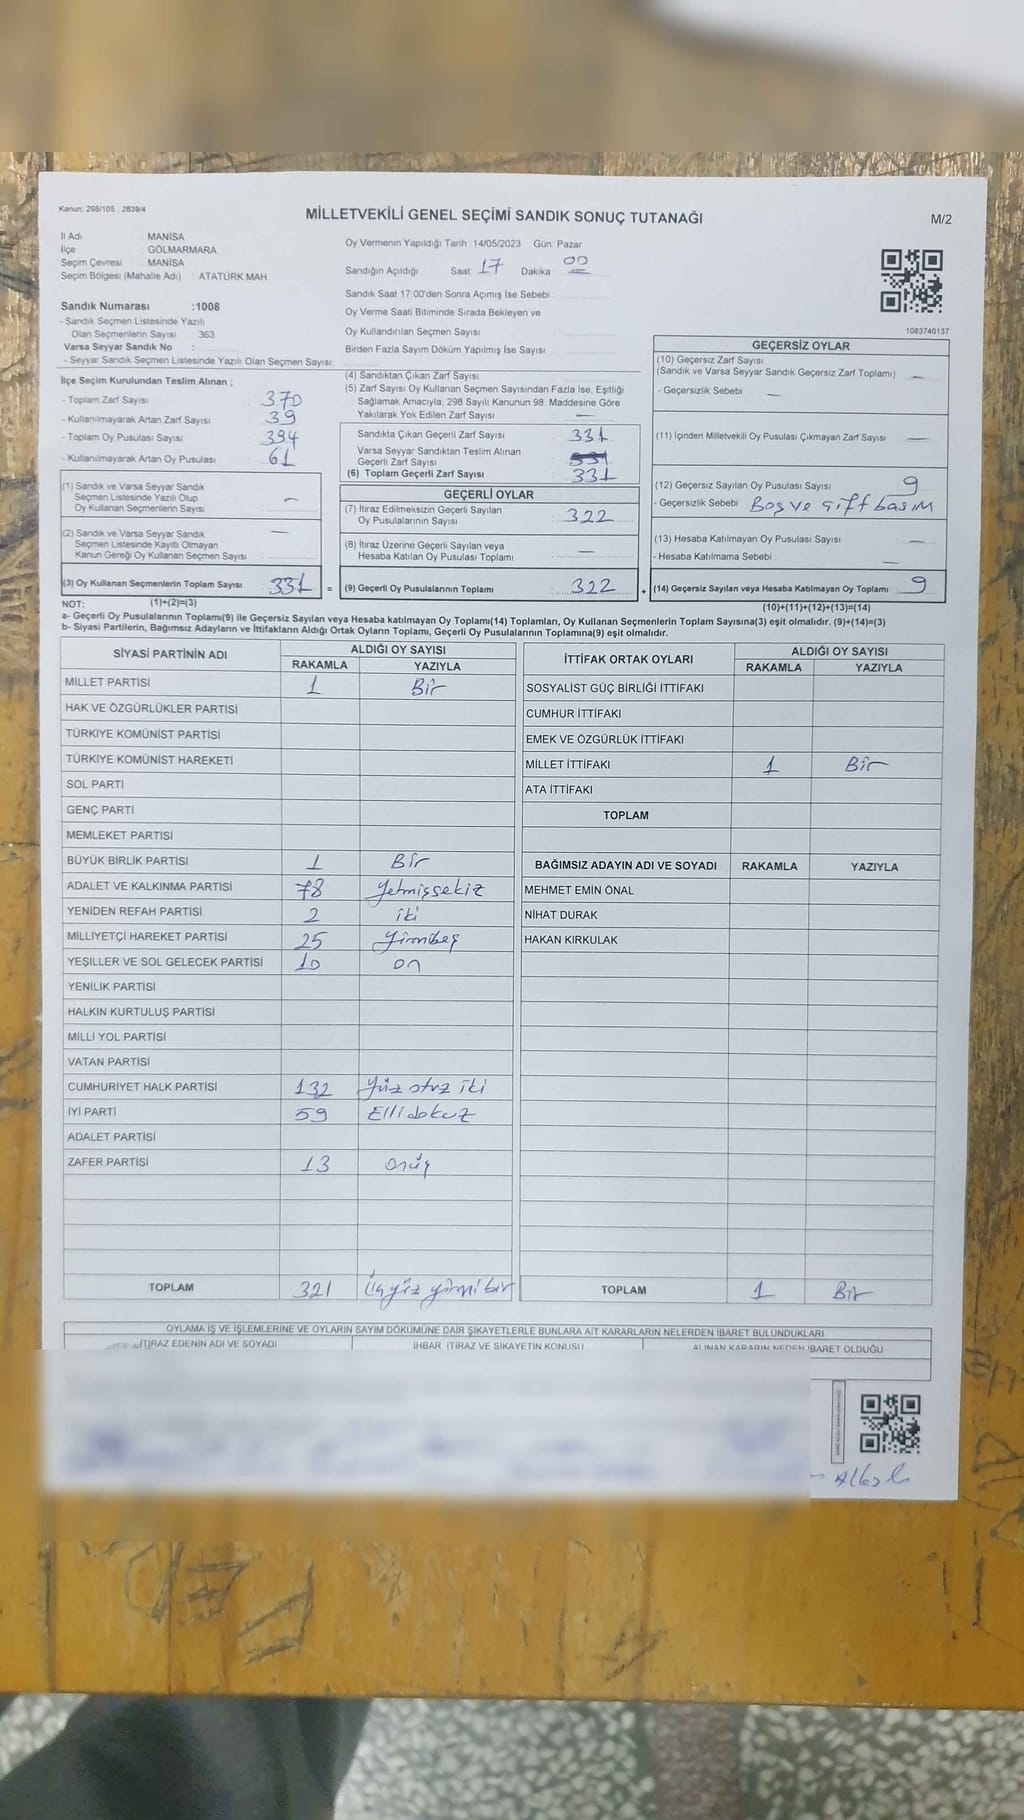 Kanun: 298/105 , 2839/4
MİLLETVEKİLİ GENEL SEÇİMİ SANDIK SONUÇ TUTANAĞI
M/2
İl Adı MANİSA
İlçe GÖLMARMARA
Seçim Çevresi MANİSA
Seçim Bölgesi (Mahalle Adı) : ATATÜRK MAH.
Oy Vermenin Yapıldığı Tarih :14/05/2023 Gün: Pazar
Sandığın Açıldığı Saat: 17 Dakika : 00
Sandık Saat 17:00'den Sonra Açımış İse Sebebi :
Oy Verme Saati Bitiminde Sırada Bekleyen ve
Oy Kullandırılan Seçmen Sayısı
Birden Fazla Sayım Döküm Yapılmış İse Sayısı
1083740137
Sandık Numarası :1008
- Sandık Seçmen Listesinde Yazılı
Olan Seçmenlerin Sayısı : 363
Varsa Seyyar Sandık No :
- Seyyar Sandık Seçmen Listesinde Yazılı Olan Seçmen Sayısı:
İlçe Seçim Kurulundan Teslim Alınan ;
- Toplam Zarf Sayısı : 370
- Kullanılmayarak Artan Zarf Sayısı : 39
- Toplam Oy Pusulası Sayısı : 394
- Kullanılmayarak Artan Oy Pusulası : 61
(1) Sandık ve Varsa Seyyar Sandık
Seçmen Listesinde Yazılı Olup
Oy Kullanan Seçmenlerin Sayısı : —
(2) Sandık ve Varsa Seyyar Sandık
Seçmen Listesinde Kayıtlı Olmayan
Kanun Gereği Oy Kullanan Seçmen Sayısı : —
(3) Oy Kullanan Seçmenlerin Toplam Sayısı 331 =
(4) Sandıktan Çıkan Zarf Sayısı
(5) Zarf Sayısı Oy Kullanan Seçmen Sayısından Fazla İse, Eşitliği
Sağlamak Amacıyla; 298 Sayılı Kanunun 98. Maddesine Göre
Yakılarak Yok Edilen Zarf Sayısı —
Sandıkta Çıkan Geçerli Zarf Sayısı 331
Varsa Seyyar Sandıktan Teslim Alınan
Geçerli Zarf Sayısı
(6) Toplam Geçerli Zarf Sayısı 331
GEÇERLİ OYLAR
(7) İtiraz Edilmeksizin Geçerli Sayılan
Oy Pusulalarının Sayısı : 322
(8) İtiraz Üzerine Geçerli Sayılan veya
Hesaba Katılan Oy Pusulası Toplamı : —
(9) Geçerli Oy Pusulalarının Toplamı 322 +
GEÇERSİZ OYLAR
(10) Geçersiz Zarf Sayısı
(Sandık ve Varsa Seyyar Sandık Geçersiz Zarf Toplamı) —
- Geçersizlik Sebebi : —
(11) İçinden Milletvekili Oy Pusulası Çıkmayan Zarf Sayısı —
(12) Geçersiz Sayılan Oy Pusulası Sayısı : 9
- Geçersizlik Sebebi : Boş ve çift basım
(13) Hesaba Katılmayan Oy Pusulası Sayısı : —
- Hesaba Katılmama Sebebi : —
(14) Geçersiz Sayılan veya Hesaba Katılmayan Oy Toplamı 9
NOT: (1)+(2)=(3)
(10)+(11)+(12)+(13)=(14)
a- Geçerli Oy Pusulalarının Toplamı(9) ile Geçersiz Sayılan veya Hesaba katılmayan Oy Toplamı(14) Toplamları, Oy Kullanan Seçmenlerin Toplam Sayısına(3) eşit olmalıdır. (9)+(14)=(3)
b- Siyasi Partilerin, Bağımsız Adayların ve İttifakların Aldığı Ortak Oyların Toplamı, Geçerli Oy Pusulalarının Toplamına(9) eşit olmalıdır.
SİYASİ PARTİNİN ADI ALDIĞI OY SAYISI
RAKAMLA YAZIYLA
MİLLET PARTİSİ 1 Bir
HAK VE ÖZGÜRLÜKLER PARTİSİ
TÜRKİYE KOMÜNİST PARTİSİ
TÜRKİYE KOMÜNİST HAREKETİ
SOL PARTİ
GENÇ PARTİ
MEMLEKET PARTİSİ
BÜYÜK BİRLİK PARTİSİ 1 Bir
ADALET VE KALKINMA PARTİSİ 78 Yetmişsekiz
YENİDEN REFAH PARTİSİ 2 iki
MİLLİYETÇİ HAREKET PARTİSİ 25 Yirmibeş
YEŞİLLER VE SOL GELECEK PARTİSİ 10 on
YENİLİK PARTİSİ
HALKIN KURTULUŞ PARTİSİ
MİLLİ YOL PARTİSİ
VATAN PARTİSİ
CUMHURİYET HALK PARTİSİ 132 Yüz otuz iki
İYİ PARTİ 59 Ellidokuz
ADALET PARTİSİ
ZAFER PARTİSİ 13 onüç
TOPLAM 321 Üçyüz yirmi bir
İTTİFAK ORTAK OYLARI ALDIĞI OY SAYISI
RAKAMLA YAZIYLA
SOSYALİST GÜÇ BİRLİĞİ İTTİFAKI
CUMHUR İTTİFAKI
EMEK VE ÖZGÜRLÜK İTTİFAKI
MİLLET İTTİFAKI 1 Bir
ATA İTTİFAKI
TOPLAM
BAĞIMSIZ ADAYIN ADI VE SOYADI RAKAMLA YAZIYLA
MEHMET EMİN ÖNAL
NİHAT DURAK
HAKAN KIRKULAK
TOPLAM 1 Bir
OYLAMA İŞ VE İŞLEMLERİNE VE OYLARIN SAYIM DÖKÜMÜNE DAİR ŞİKAYETLERLE BUNLARA AİT KARARLARIN NELERDEN İBARET BULUNDUKLARI
İTİRAZ EDENİN ADI VE SOYADI İHBAR, İTİRAZ VE ŞİKAYETİN KONUSU ALINAN KARARIN NEDEN İBARET OLDUĞU